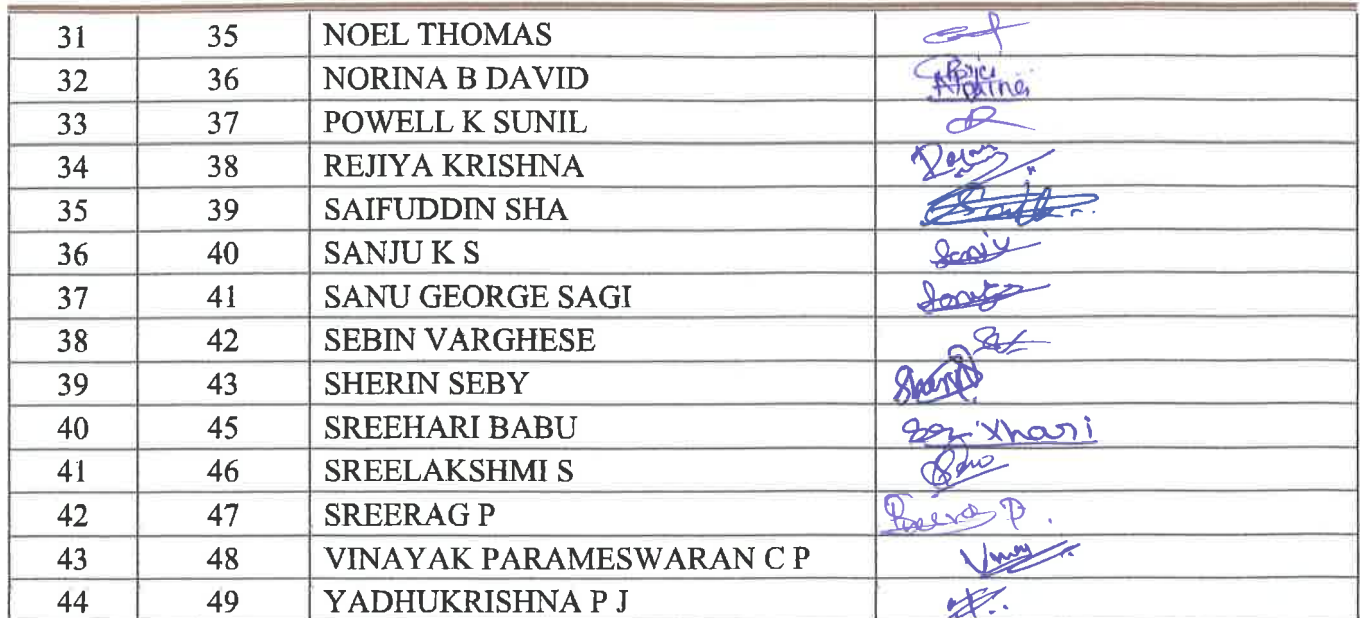 31 35 NOEL THOMAS
32 36 NORINA B DAVID
33 37 POWELL K SUNIL
34 38 REJIYA KRISHNA
35 39 SAIFUDDIN SHA
36 40 SANJU K S
37 41 SANU GEORGE SAGI
38 42 SEBIN VARGHESE
39 43 SHERIN SEBY
40 45 SREEHARI BABU
41 46 SREELAKSHMI S
42 47 SREERAG P
43 48 VINAYAK PARAMESWARAN C P
44 49 YADHUKRISHNA P J